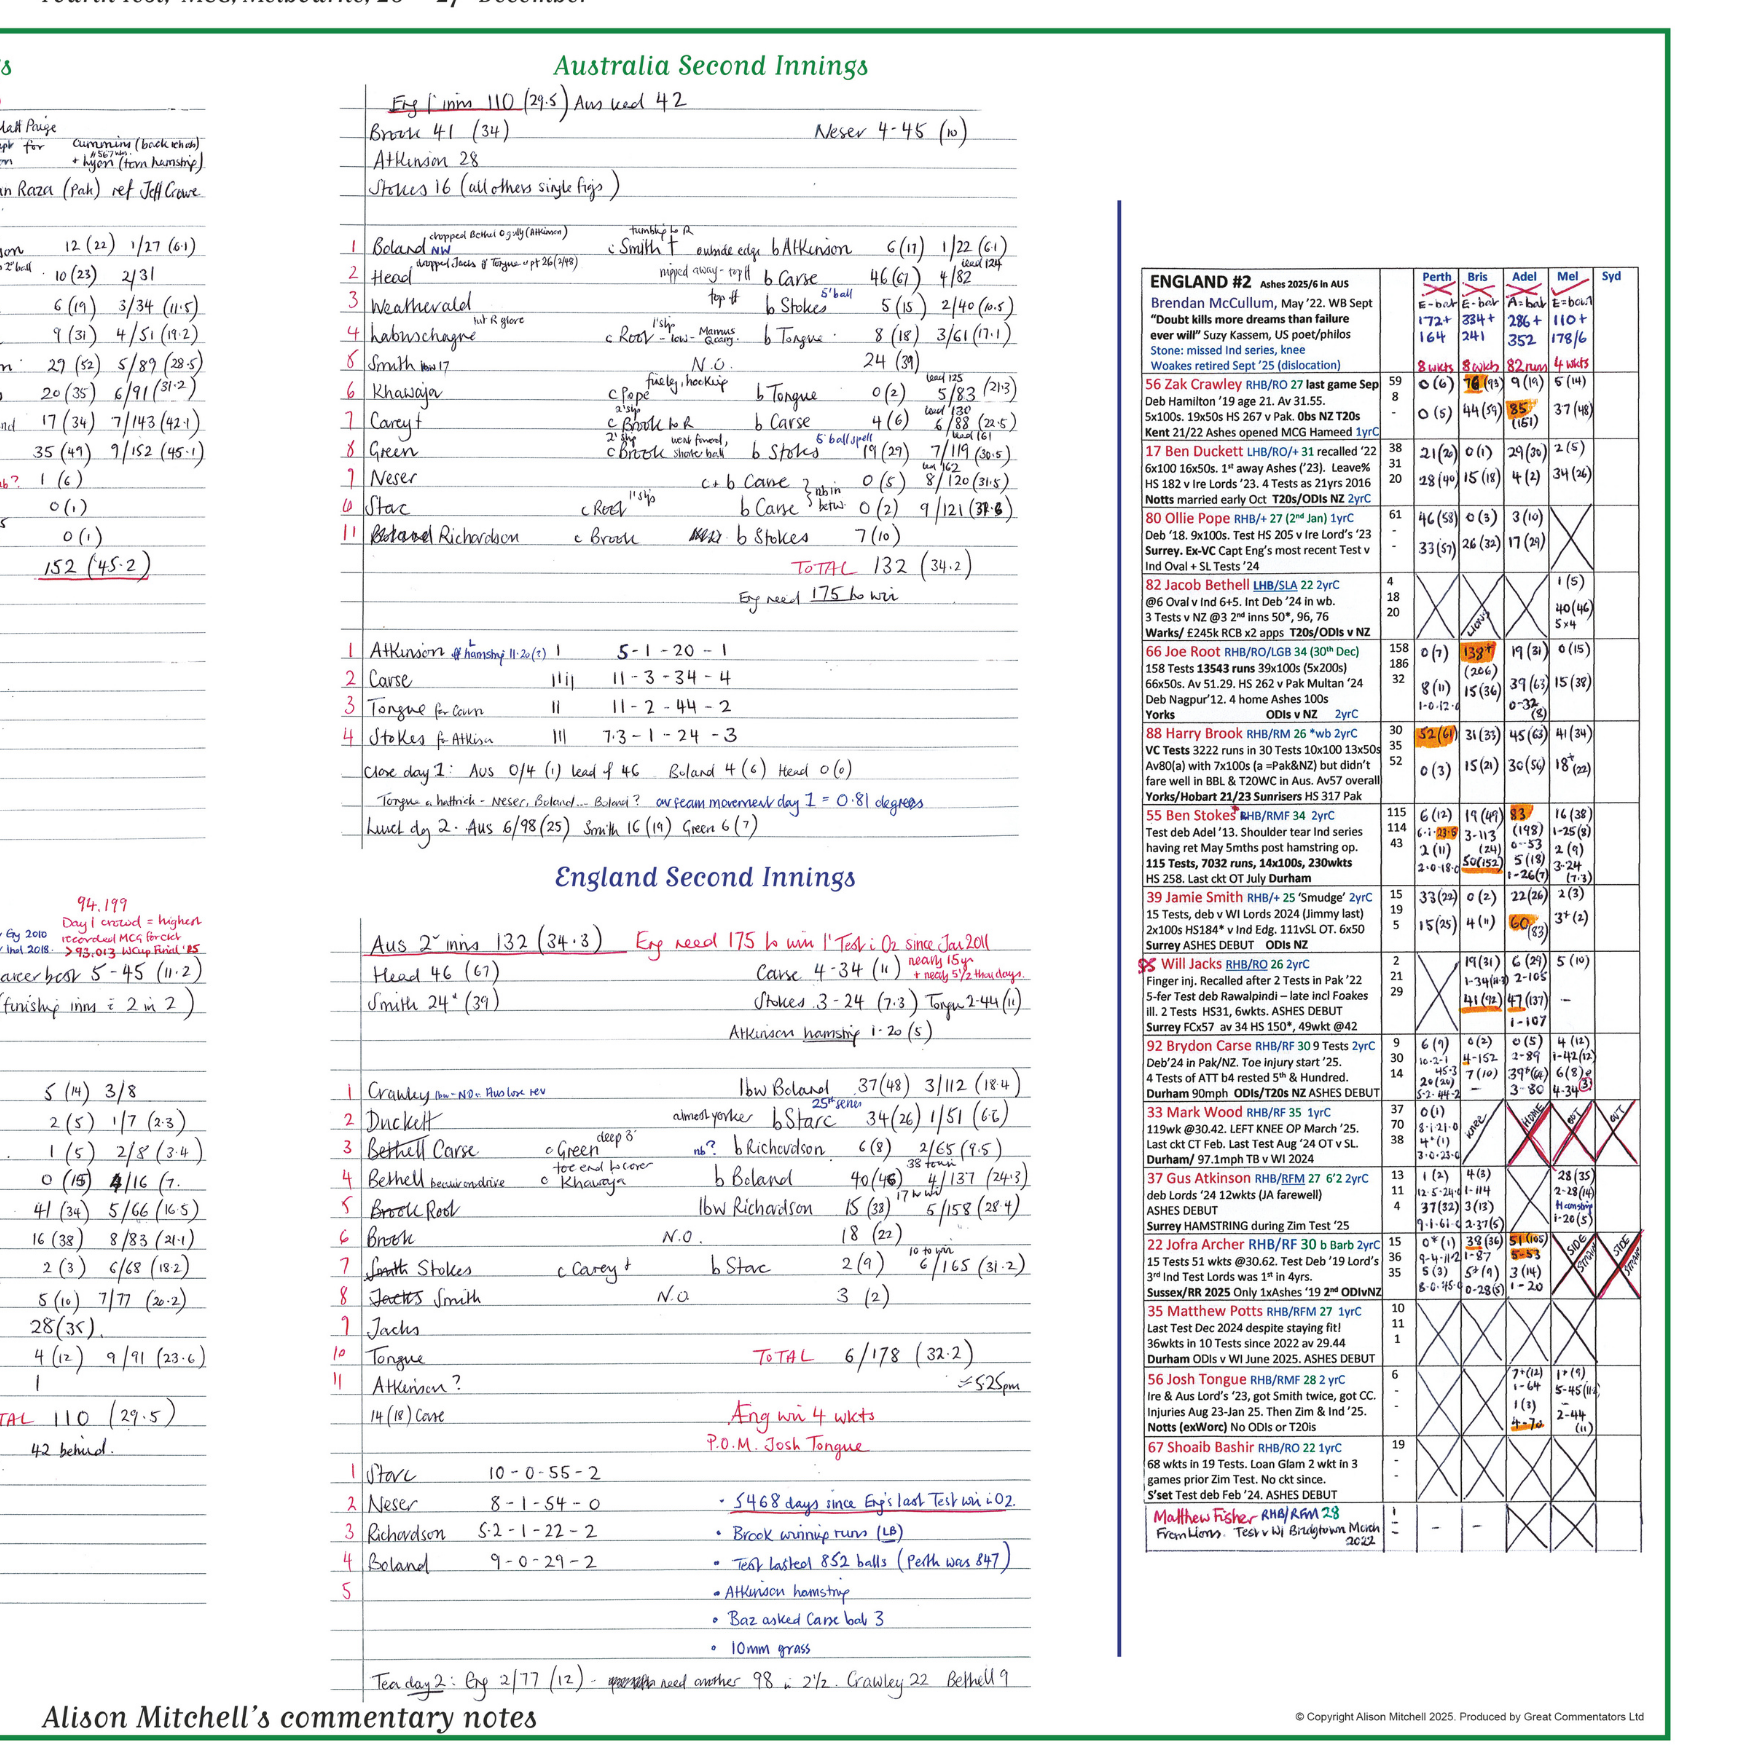 Fourth Test, MCG, Melbourne, 26 - 27 December
Matt Paige
for Cummins (back rehab)
+ Lyon (torn hamstring)
Raza (Pak) ref Jeff Crowe
12 (22) 1/27 (6.1)
10 (23) 2/31
6 (19) 3/34 (11.5)
9 (31) 4/51 (19.2)
29 (52) 5/89 (28.5)
20 (35) 6/91 (31.2)
17 (34) 7/143 (42.1)
35 (49) 9/152 (45.1)
1 (6)
0 (1)
0 (1)
152 (45.2)
94.199
Day 1 crowd = highest
recorded MCG for ckt
> 93,013 WCup Final '15
career best 5-45 (11.2)
(finishing inns = 2 in 2)
5 (14) 3/8
2 (5) 1/7 (2.3)
1 (5) 2/8 (3.4)
0 (15) 4/16 (7.
41 (34) 5/66 (16.5)
16 (38) 8/83 (21.1)
2 (3) 6/68 (18.2)
5 (10) 7/77 (20.2)
28 (35)
4 (12) 9/91 (23.6)
1
TOTAL 110 (29.5)
42 behind.
Australia Second Innings
Eng 1st inns 110 (29.5) Aus lead 42
Brook 41 (34) Neser 4-45 (10)
Atkinson 28
Stokes 16 (all others single figs)
dropped Bethel 0 gully (Atkinson) tumbling to R
1 Boland NW c Smith † outside edge b Atkinson 6 (17) 1/22 (6.1)
dropped Jacks off Tongue 26 nipped away - top # lead 124
2 Head b Carse 46 (67) 4/82
3 Weatherald top # b Stokes 5' ball 5 (15) 2/40 (10.5)
hit R glove
4 Labuschagne c Root 1st slip - low - Marnus b Tongue 8 (18) 3/61 (17.1)
5 Smith N.O. 24 (39)
fine leg, hooking lead 125
6 Khawaja c Pope b Tongue 0 (2) 5/83 (21.3)
2' slip lead 130
7 Carey † c Brook to R b Carse 4 (6) 6/88 (22.5)
2' slip went forward, shorter ball 5 ball spell lead 161
8 Green c Brook b Stokes 19 (29) 7/119 (30.5)
lead 162
9 Neser c + b Carse 0 (5) 8/120 (31.5)
1st slip nb in betw
10 Starc c Root b Carse 0 (2) 9/121 (31.6)
11 Boland Richardson c Brook b Stokes 7 (10)
TOTAL 132 (34.2)
Eng need 175 to win
1 Atkinson hamstring 5-1-20-1
2 Carse 11-3-34-4
3 Tongue 11-2-44-2
4 Stokes for Atkinson 7.3-1-24-3
Close day 1: Aus 0/4 (1) lead of 46 Boland 4 (6) Head 0 (0)
Tongue a hattrick - Neser, Boland... Boland? av seam movement day 1 = 0.81 degrees
Lunch day 2. Aus 6/98 (25) Smith 16 (19) Green 6 (7)
England Second Innings
Aus 2nd inns 132 (34.3) Eng need 175 to win 1st Test in Oz since Jan 2011
nearly 15 yr
Head 46 (67) Carse 4-34 (11) + nearly 5 1/2 thou days.
Smith 24* (39) Stokes 3-24 (7.3) Tongue 2-44 (11)
Atkinson hamstring 1-20 (5)
1 Crawley lbw - NO - Aus lose rev lbw Boland 37 (48) 3/112 (18.4)
25th series
2 Duckett almost yorker b Starc 34 (26) 1/51 (6.6)
deep 3'
3 Bethell Carse c Green nb? b Richardson 6 (8) 2/65 (9.5)
toe end to cover 38 to win
4 Bethell c Khawaja b Boland 40 (46) 4/137 (24.3)
17 to win
5 Brook Root lbw Richardson 15 (38) 5/158 (28.4)
6 Brook N.O. 18 (22)
10 to win
7 Smith Stokes c Carey † b Starc 2 (9) 6/165 (31.2)
8 Jacks Smith N.O 3 (2)
9 Jacks
10 Tongue TOTAL 6/178 (32.2)
11 Atkinson? = 5.25pm
14 (18) Carse Eng win 4 wkts
P.O.M. Josh Tongue
1 Starc 10-0-55-2
2 Neser 8-1-54-0
3 Richardson 5.2-1-22-2
4 Boland 9-0-29-2
5
• 5468 days since Eng's last Test win in Oz.
• Brook winning runs (LB)
• Test lasted 852 balls (Perth was 847)
• Atkinson hamstring
• Baz asked Carse bat 3
• 10mm grass
Tea day 2: Eng 2/77 (12) - need another 98 in 2 1/2. Crawley 22 Bethell 9
ENGLAND #2 Ashes 2025/6 in AUS Perth Bris Adel Mel Syd
Brendan McCullum, May '22. WB Sept E-bat E-bat A=bat E=bowl
"Doubt kills more dreams than failure 172+ 334+ 286+ 110+
ever will" Suzy Kassem, US poet/philos 164 241 352 178/6
Stone: missed Ind series, knee
Woakes retired Sept '25 (dislocation) 8 wkts 8 wkts 82 runs 4 wkts
56 Zak Crawley RHB/RO 27 last game Sep 59 0 (6) 76 (93) 9 (19) 5 (14)
Deb Hamilton '19 age 21. Av 31.55. 8
5x100s. 19x50s HS 267 v Pak. 0bs NZ T20s - 0 (5) 44 (59) 85 (151) 37 (48)
Kent 21/22 Ashes opened MCG Hameed 1yrC
17 Ben Duckett LHB/RO/+ 31 recalled '22 38 21 (20) 0 (1) 29 (30) 2 (5)
6x100 16x50s. 1st away Ashes ('23). Leave% 31
HS 182 v Ire Lords '23. 4 Tests as 21yrs 2016 20 28 (40) 15 (18) 4 (2) 34 (26)
Notts married early Oct T20s/ODIs NZ 2yrC
80 Ollie Pope RHB/+ 27 (2nd Jan) 1yrC 61 46 (58) 0 (3) 3 (10)
Deb '18. 9x100s. Test HS 205 v Ire Lord's '23 -
Surrey. Ex-VC Capt Eng's most recent Test v - 33 (57) 26 (32) 17 (29)
Ind Oval + SL Tests '24
82 Jacob Bethell LHB/SLA 22 2yrC 4 1 (5)
@6 Oval v Ind 6+5. Int Deb '24 in wb. 18
3 Tests v NZ @3 2nd inns 50*, 96, 76 20 40 (46)
Warks/ £245k RCB x2 apps T20s/ODIs v NZ 5x4
66 Joe Root RHB/RO/LGB 34 (30th Dec) 158 0 (7) 138* (206) 19 (31) 0 (15)
158 Tests 13543 runs 39x100s (5x200s) 186
66x50s. Av 51.29. HS 262 v Pak Multan '24 32 8 (11) 15 (36) 39 (63) 15 (38)
Deb Nagpur'12. 4 home Ashes 100s 1-0-12-0 0-32 (8)
Yorks ODIs v NZ 2yrC
88 Harry Brook RHB/RM 26 *wb 2yrC 30 52 (61) 31 (33) 45 (63) 41 (34)
VC Tests 3222 runs in 30 Tests 10x100 13x50s 35
Av80(a) with 7x100s (a =Pak&NZ) but didn't 52 0 (3) 15 (21) 30 (56) 18* (22)
fare well in BBL & T20WC in Aus. Av57 overall
Yorks/Hobart 21/23 Sunrisers HS 317 Pak
55 Ben Stokes* RHB/RMF 34 2yrC 115 6 (12) 19 (49) 83 (198) 16 (38)
Test deb Adel '13. Shoulder tear Ind series 114 3-113 (24) 0-53 1-25 (8)
having ret May 5mths post hamstring op. 43 2 (11) 50 (152) 5 (18) 2 (9)
115 Tests, 7032 runs, 14x100s, 230wkts 2-0-18-0 1-26 (7) 3-24 (7.3)
HS 258. Last ckt OT July Durham
39 Jamie Smith RHB/+ 25 'Smudge' 2yrC 15 33 (22) 0 (2) 22 (26) 2 (3)
15 Tests, deb v WI Lords 2024 (Jimmy last) 19
2x100s HS184* v Ind Edg. 111vSL OT. 6x50 5 15 (25) 4 (11) 60 (83) 3* (2)
Surrey ASHES DEBUT ODIs NZ
85 Will Jacks RHB/RO 26 2yrC 2 19 (31) 6 (29) 5 (10)
Finger inj. Recalled after 2 Tests in Pak '22 21 2-105
5-fer Test deb Rawalpindi – late incl Foakes 29 41 (92) 47 (137) -
ill. 2 Tests HS31, 6wkts. ASHES DEBUT 1-107
Surrey FCx57 av 34 HS 150*, 49wkt @42
92 Brydon Carse RHB/RF 30 9 Tests 2yrC 9 6 (9) 0 (2) 0 (5) 4 (12)
Deb'24 in Pak/NZ. Toe injury start '25. 30 4-152 2-89 1-42 (12)
4 Tests of ATT b4 rested 5th & Hundred. 14 20 (20) 7 (10) 39* (64) 6 (8)
Durham 90mph ODIs/T20s NZ ASHES DEBUT - 3-80 4-34
33 Mark Wood RHB/RF 35 1yrC 37 0 (1) Knee HOME OUT OUT
119wk @30.42. LEFT KNEE OP March '25. 70 8-1-21-0
Last ckt CT Feb. Last Test Aug '24 OT v SL. 38 4* (1)
Durham/ 97.1mph TB v WI 2024 3-0-23-0
37 Gus Atkinson RHB/RFM 27 6'2 2yrC 13 1 (2) 4 (3) 28 (35)
deb Lords '24 12wkts (JA farewell) 11 12-5-24-0 1-114 2-28 (14)
ASHES DEBUT 4 37 (32) 3 (13) Hamstring
Surrey HAMSTRING during Zim Test '25 9-1-61-0 2-37 (5) 1-20 (5)
22 Jofra Archer RHB/RF 30 b Barb 2yrC 15 0* (1) 38 (36) 51 (105) SIDE STRAIN SIDE STRAIN
15 Tests 51 wkts @30.62. Test Deb '19 Lord's 36 9-4-11-2 1-87 5-53
3rd Ind Test Lords was 1st in 4yrs. 35 5 (3) 5* (9) 3 (14)
Sussex/RR 2025 Only 1xAshes '19 2nd ODIvNZ 0-28 (5) 1-20
35 Matthew Potts RHB/RFM 27 1yrC 10
Last Test Dec 2024 despite staying fit! 11
36wkts in 10 Tests since 2022 av 29.44 1
Durham ODIs v WI June 2025. ASHES DEBUT
56 Josh Tongue RHB/RMF 28 2 yrC 6 7* (12) 1* (9)
Ire & Aus Lord's '23, got Smith twice, got CC. - 1-64 5-45 (11
Injuries Aug 23-Jan 25. Then Zim & Ind '25. - 1 (3) 2-44
Notts (exWorc) No ODIs or T20is 4-70 (11)
67 Shoaib Bashir RHB/RO 22 1yrC 19
68 wkts in 19 Tests. Loan Glam 2 wkt in 3 -
games prior Zim Test. No ckt since. -
S'set Test deb Feb '24. ASHES DEBUT
Matthew Fisher RHB/RFM 28 1
From Lions. Test v WI Bridgtown March 2022 - -
Alison Mitchell's commentary notes
© Copyright Alison Mitchell 2025. Produced by Great Commentators Ltd